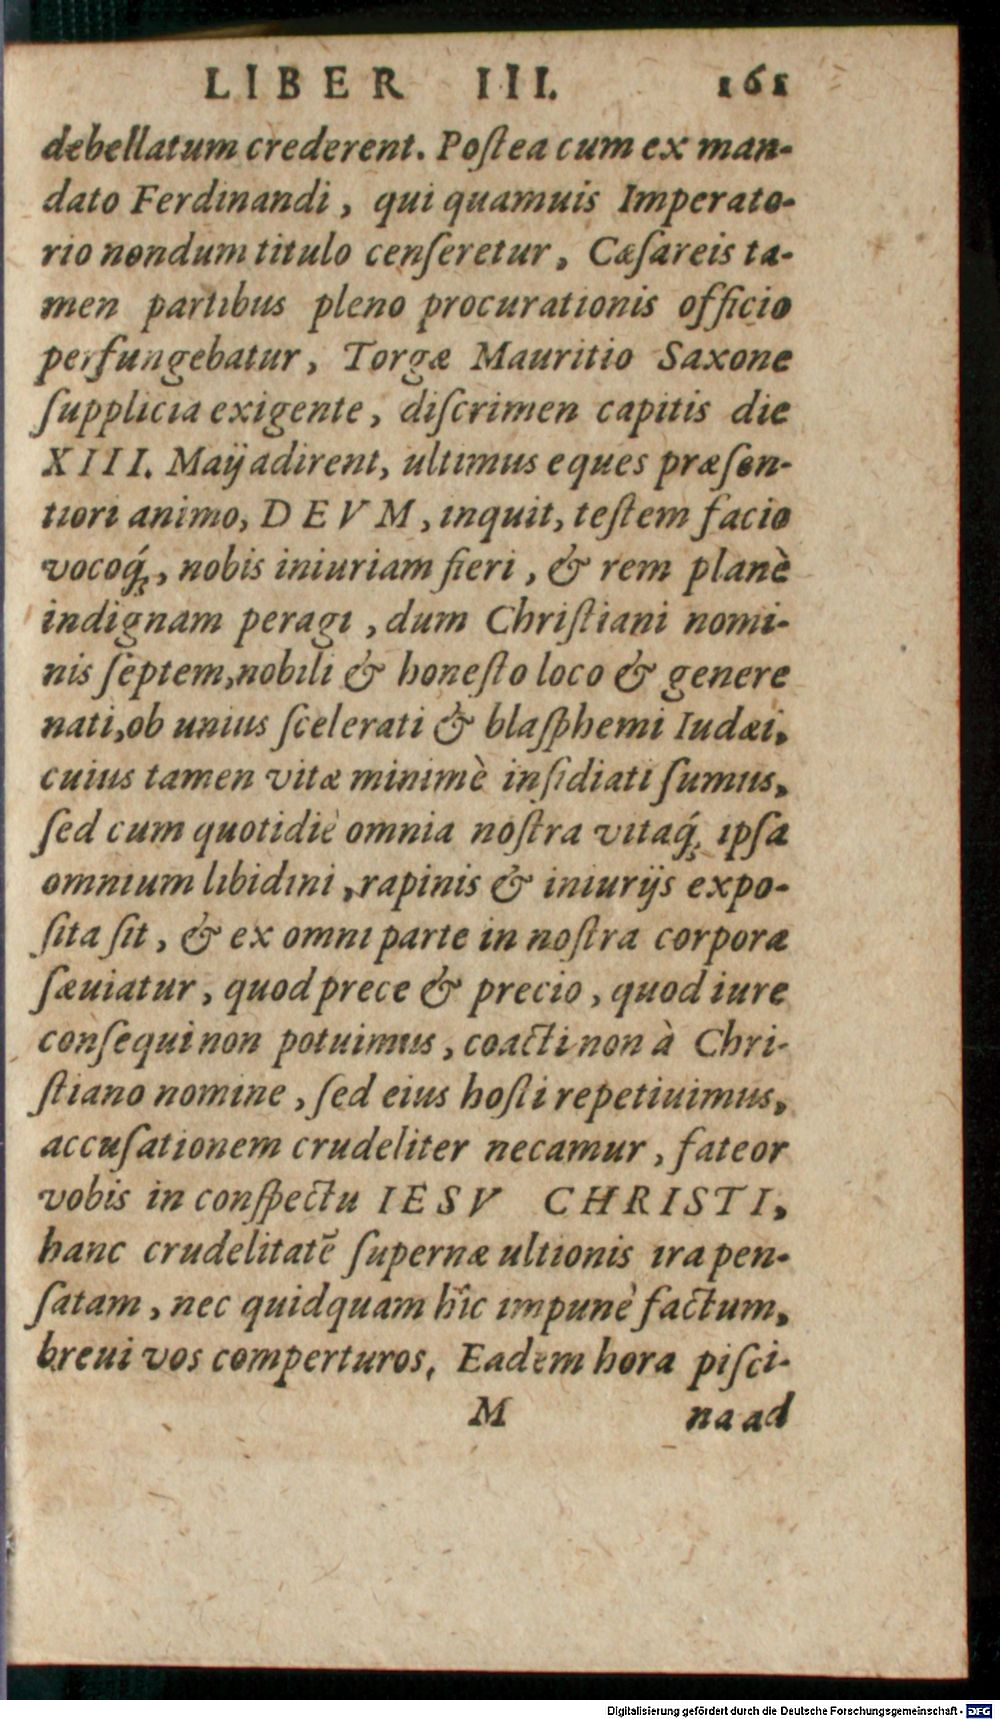 LIBER III. 161
debellatum crederent. Poſtea cum ex man-
dato Ferdinandi, qui quamuis Imperato-
rio nondum titulo cenſeretur, Cæſareis ta-
men partibus pleno procurationis officio
perfungebatur, Torgæ Mauritio Saxone
ſupplicia exigente, diſcrimen capitis die
XIII. Maij adirent, ultimus eques præſen-
tiori animo, DEVM, inquit, teſtem facio
vocoq́;, nobis iniuriam fieri, & rem planè
indignam peragi, dum Chriſtiani nomi-
nis ſeptem, nobili & honeſto loco & genere
nati, ob unius ſcelerati & blaſphemi Iudæi,
cuius tamen vitæ minimè inſidiati ſumus,
ſed cum quotidiè omnia noſtra vitaq́; ipſa
omnium libidini, rapinis & iniurijs expo-
ſita ſit, & ex omni parte in noſtra corpora
ſæuiatur, quod prece & precio, quod iure
conſequi non potuimus, coacti non à Chri-
ſtiano nomine, ſed eius hoſti repetiuimus,
accuſationem crudeliter necamur, fateor
vobis in conſpectu IESV CHRISTI,
hanc crudelitatẽ ſupernæ ultionis ira pen-
ſatam, nec quidquam hîc impunè factum,
breui vos comperturos, Eadem hora piſci-
M na ad
Digitalisierung gefördert durch die Deutsche Forschungsgemeinschaft - DFG